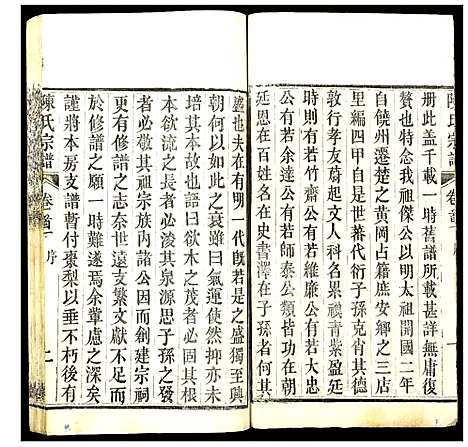 陳氏宗譜
卷首
序
冊此蓋千載一時舊譜所載甚詳無庸復
贅也特念我祖傑公以明太祖開國二年
自饒州遷楚之黃州占籍庶安鄉之三店
里編四甲自是世蕃代衍子孫克肖孫
敦行孝友蔚起文人科名果禩青紫盈廷
時則有若大行公有若維廉公有若大忠
公有若余達公有若師泰公類皆功在朝
延恩在百姓名在史書澤在子孫者何其
盛也夫在有明一代旣若是之盛獨至興
朝何以忽之衰雖曰氣運使然抑亦未嘗
培其本故也語有云欲木之茂者必固其
本欲流之長者必浚其泉源思子孫之發
者必敬其祖宗族內諸公因而創建宗祠
更有修譜之志奈世遠支繁文獻不足而
於修譜之願一時難遂焉余輩慮之深矣
謹將本房支譜暫付棗梨以垂不朽後有
陳氏宗譜
卷首
序
二